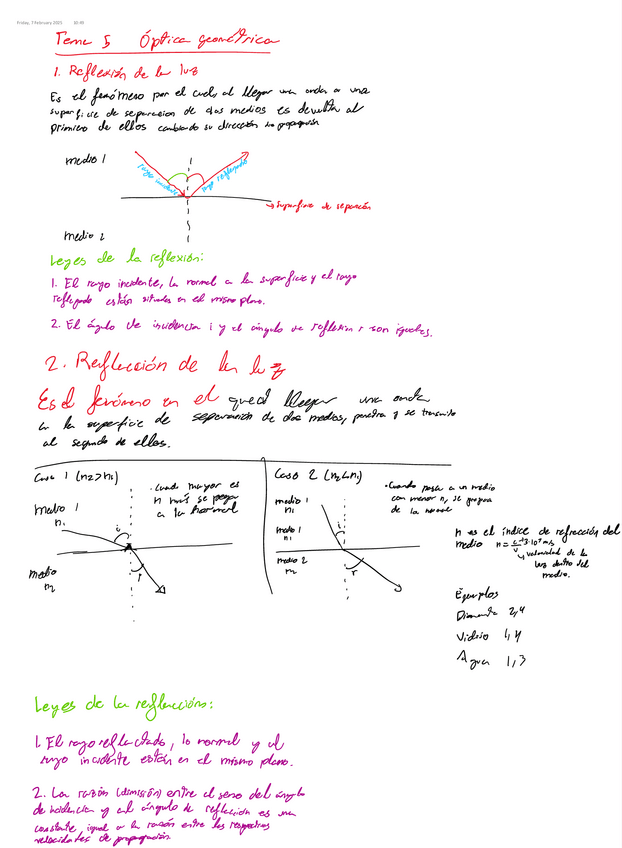 Friday, 7 February 2025 16:49
Tema 5 Óptica geométrica
1. Reflexión de la luz
Es el fenómeno por el cual, al llegar una onda a una
superficie de separación de dos medios es devuelta al
primero de ellos cambiando su dirección de propagación
medio 1
rayo incidente
rayo reflejado
superficie de separación
medio 2
Leyes de la reflexión:
1. El rayo incidente, la normal a la superficie y el rayo
reflejado están situados en el mismo plano.
2. El ángulo de incidencia i y el ángulo de reflexión r son iguales.
2. Reflección de la luz
Es el fenómeno en el que al llegar una onda
a la superficie de separación de dos medios, penetra y se transmite
al segundo de ellos.
Caso 1 (n2>n1)
· Cuando mayor es
n más se pega
a la normal
medio 1
n1
i
medio
n2
r
Caso 2 (n2<n1)
· Cuando pasa a un medio
con menor n, se
de la normal
medio 1
n1
medio 1
n1
i
medio 2
n2
r
n es el índice de refrección del
medio n = c/v → 3·10⁸ m/s
velocidad de la
luz dentro del
medio.
Ejemplos
Diamante 2,4
Vidrio 1,4
Agua 1,3
Leyes de la reflección:
1. El rayo reflectado, la normal y el
rayo incidente están en el mismo plano.
2. La razón (división) entre el seno del ángulo
de incidencia y el ángulo de reflección es una
constante, igual a la razón entre las respectivas
velocidades de propagación.